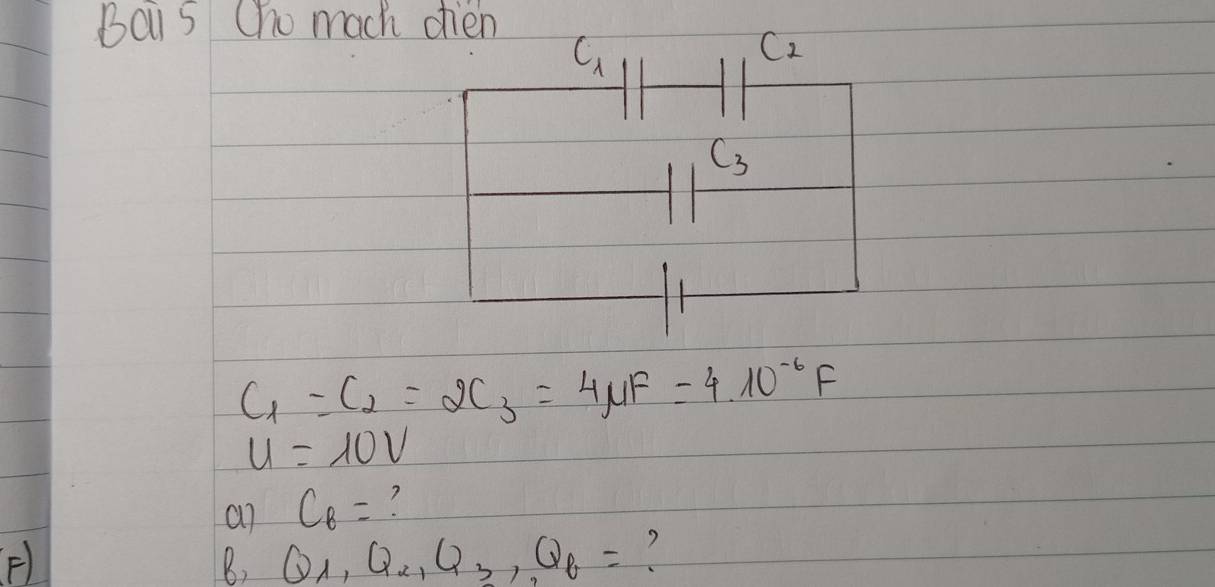 Bài 5 Cho mạch điện
C₁ C₂
C₃
C₁ = C₂ = 2C₃ = 4μF = 4.10⁻⁶ F
U = 10V
a) C_b = ?
(F)
b, Q₁, Q₂, Q₃, Q_b = ?